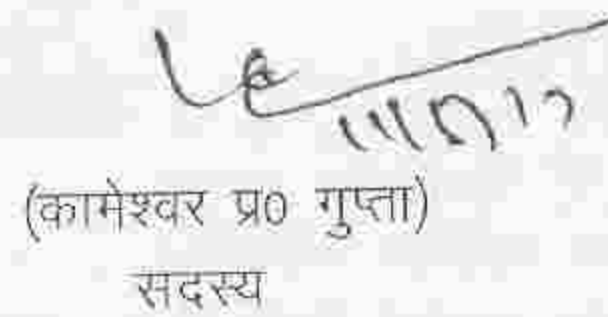 (कामेश्वर प्र0 गुप्ता)
सदस्य